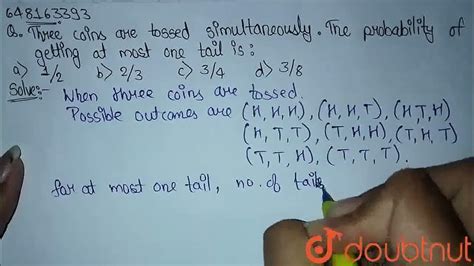 648163393
Q. Three coins are tossed simultaneously. The probability of
getting at most one tail is:
a) 1/2 b> 2/3 c> 3/4 d> 3/8
Solve:-
When three coins are tossed.
Possible outcomes are (H, H, H), (H, H, T), (H, T, H)
(H, T, T), (T, H, H), (T, H, T)
(T, T, H), (T, T, T).
for at most one tail, no. of tails
doubtnut